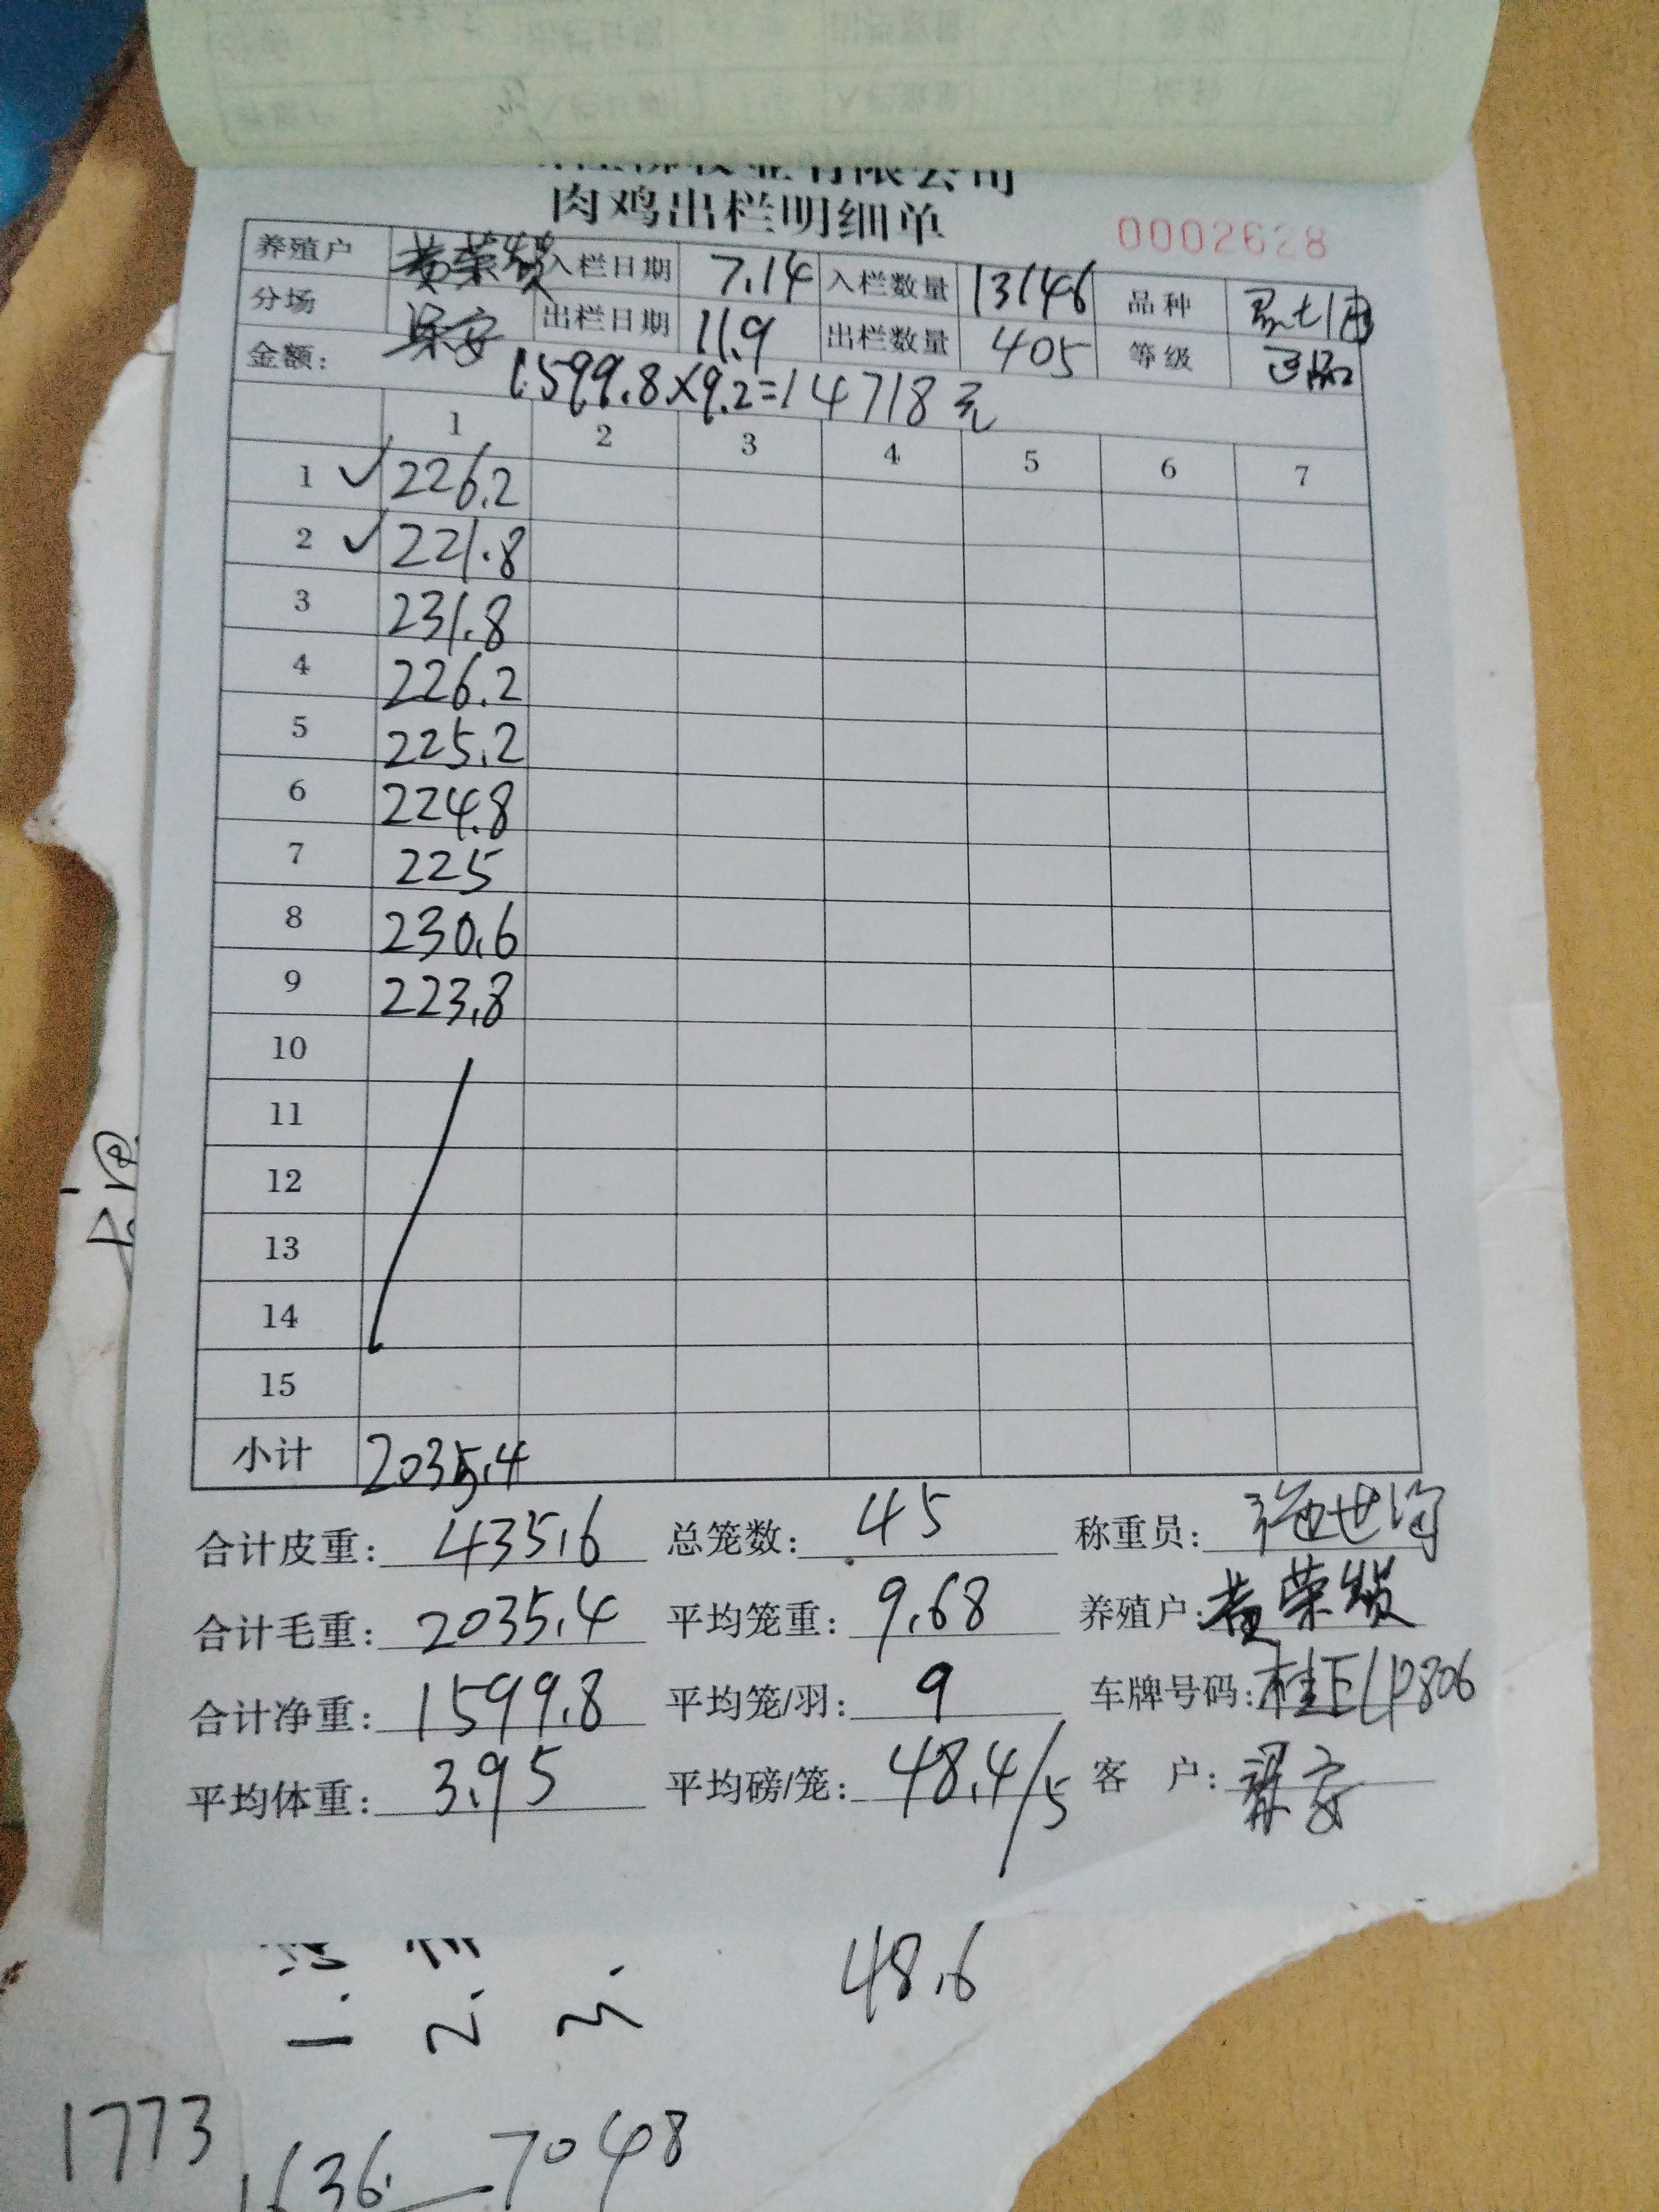 牧业有限公司
肉鸡出栏明细单
0002628
养殖户 黄荣 入栏日期 7.14 入栏数量 13146 品种
分场 梁安 出栏日期 11.9 出栏数量 405 等级 正品
金额: 1599.8×9.2=14718元
1 2 3 4 5 6 7
1 ✓ 226.2
2 ✓ 221.8
3 231.8
4 226.2
5 225.2
6 224.8
7 225
8 230.6
9 223.8
10
11
12
13
14
15
小计 2035.4
合计皮重: 435.6 总笼数: 45 称重员: 世
合计毛重: 2035.4 平均笼重: 9.68 养殖户: 黄荣
合计净重: 1599.8 平均笼/羽: 9 车牌号码: 桂E
平均体重: 3.95 平均磅/笼: 48.4/5 客 户: 梁安
48.6
1773
1636 7048